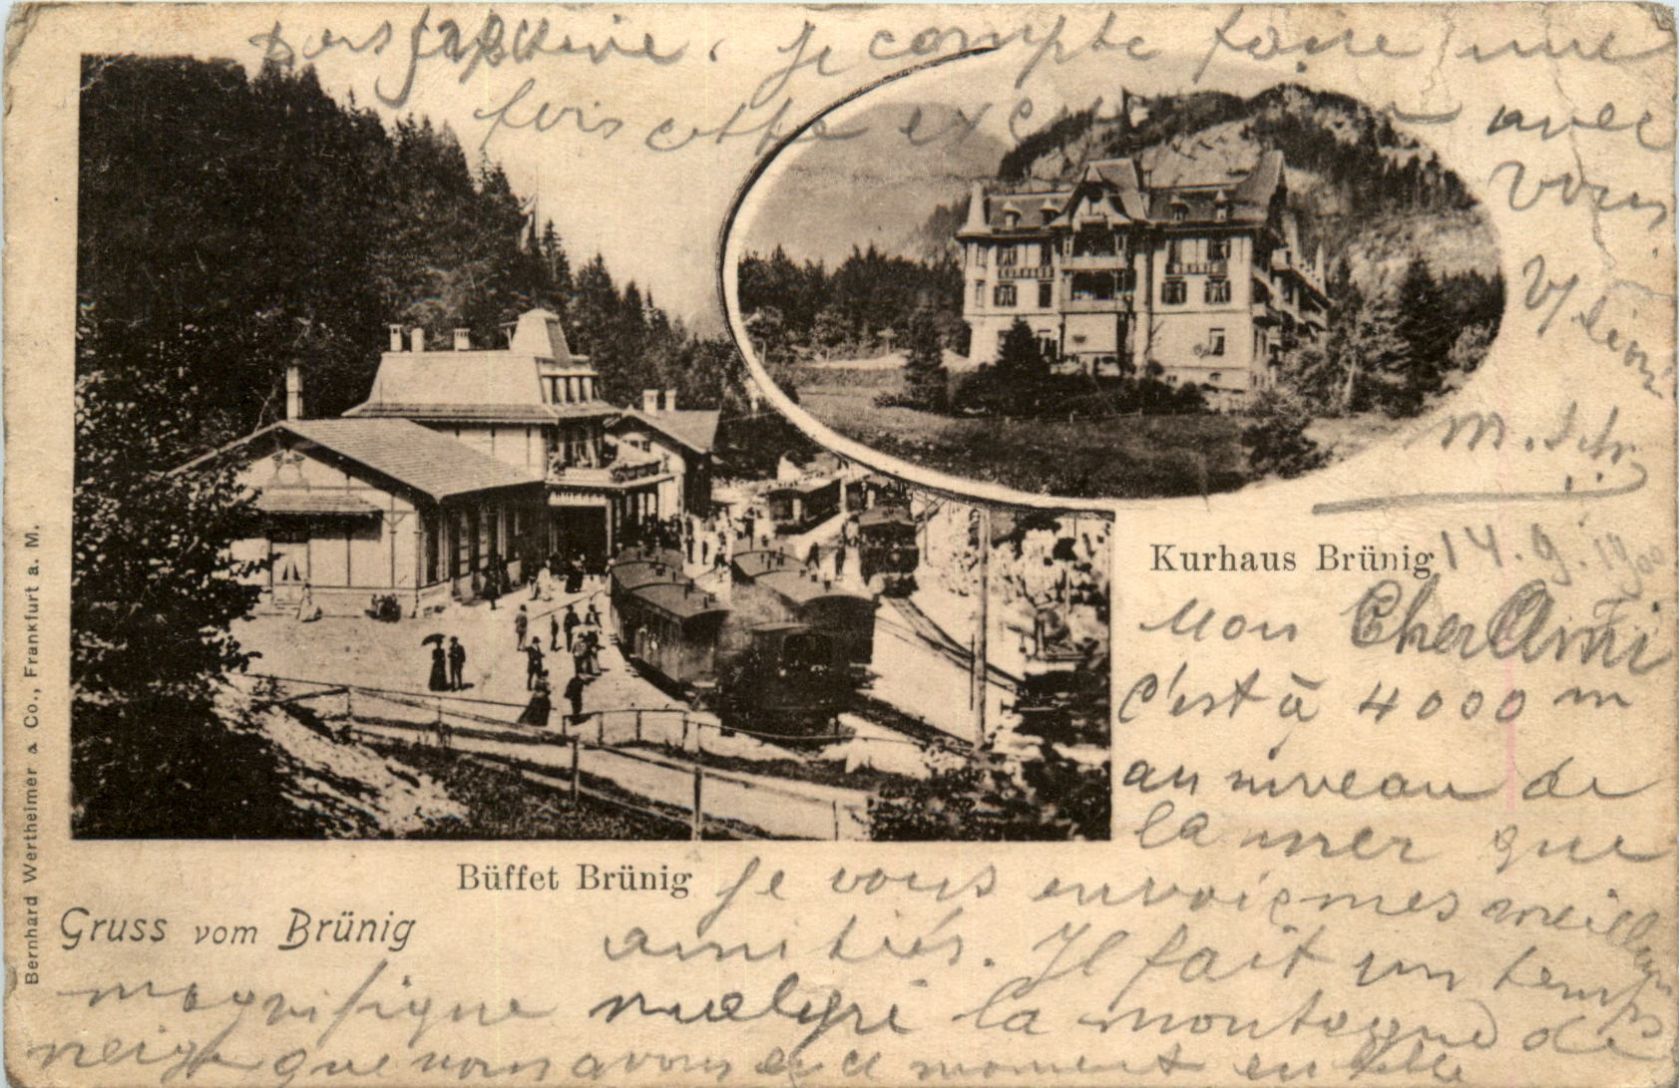 Kurhaus Brünig
Büffet Brünig
Gruss vom Brünig
Bernhard Wertheimer & Co., Frankfurt a. M.
14. 9. 1900
Mon Cher Ami
c'est à 4000 m
au niveau de
la mer que
je vous envoie mes meilleures
amitiés. Il fait un temps
magnifique malgré la montagne de
neige que nous avons en ce moment en belle
perspective. Je compte faire une
fois cette avec
vous.
m. Sch.